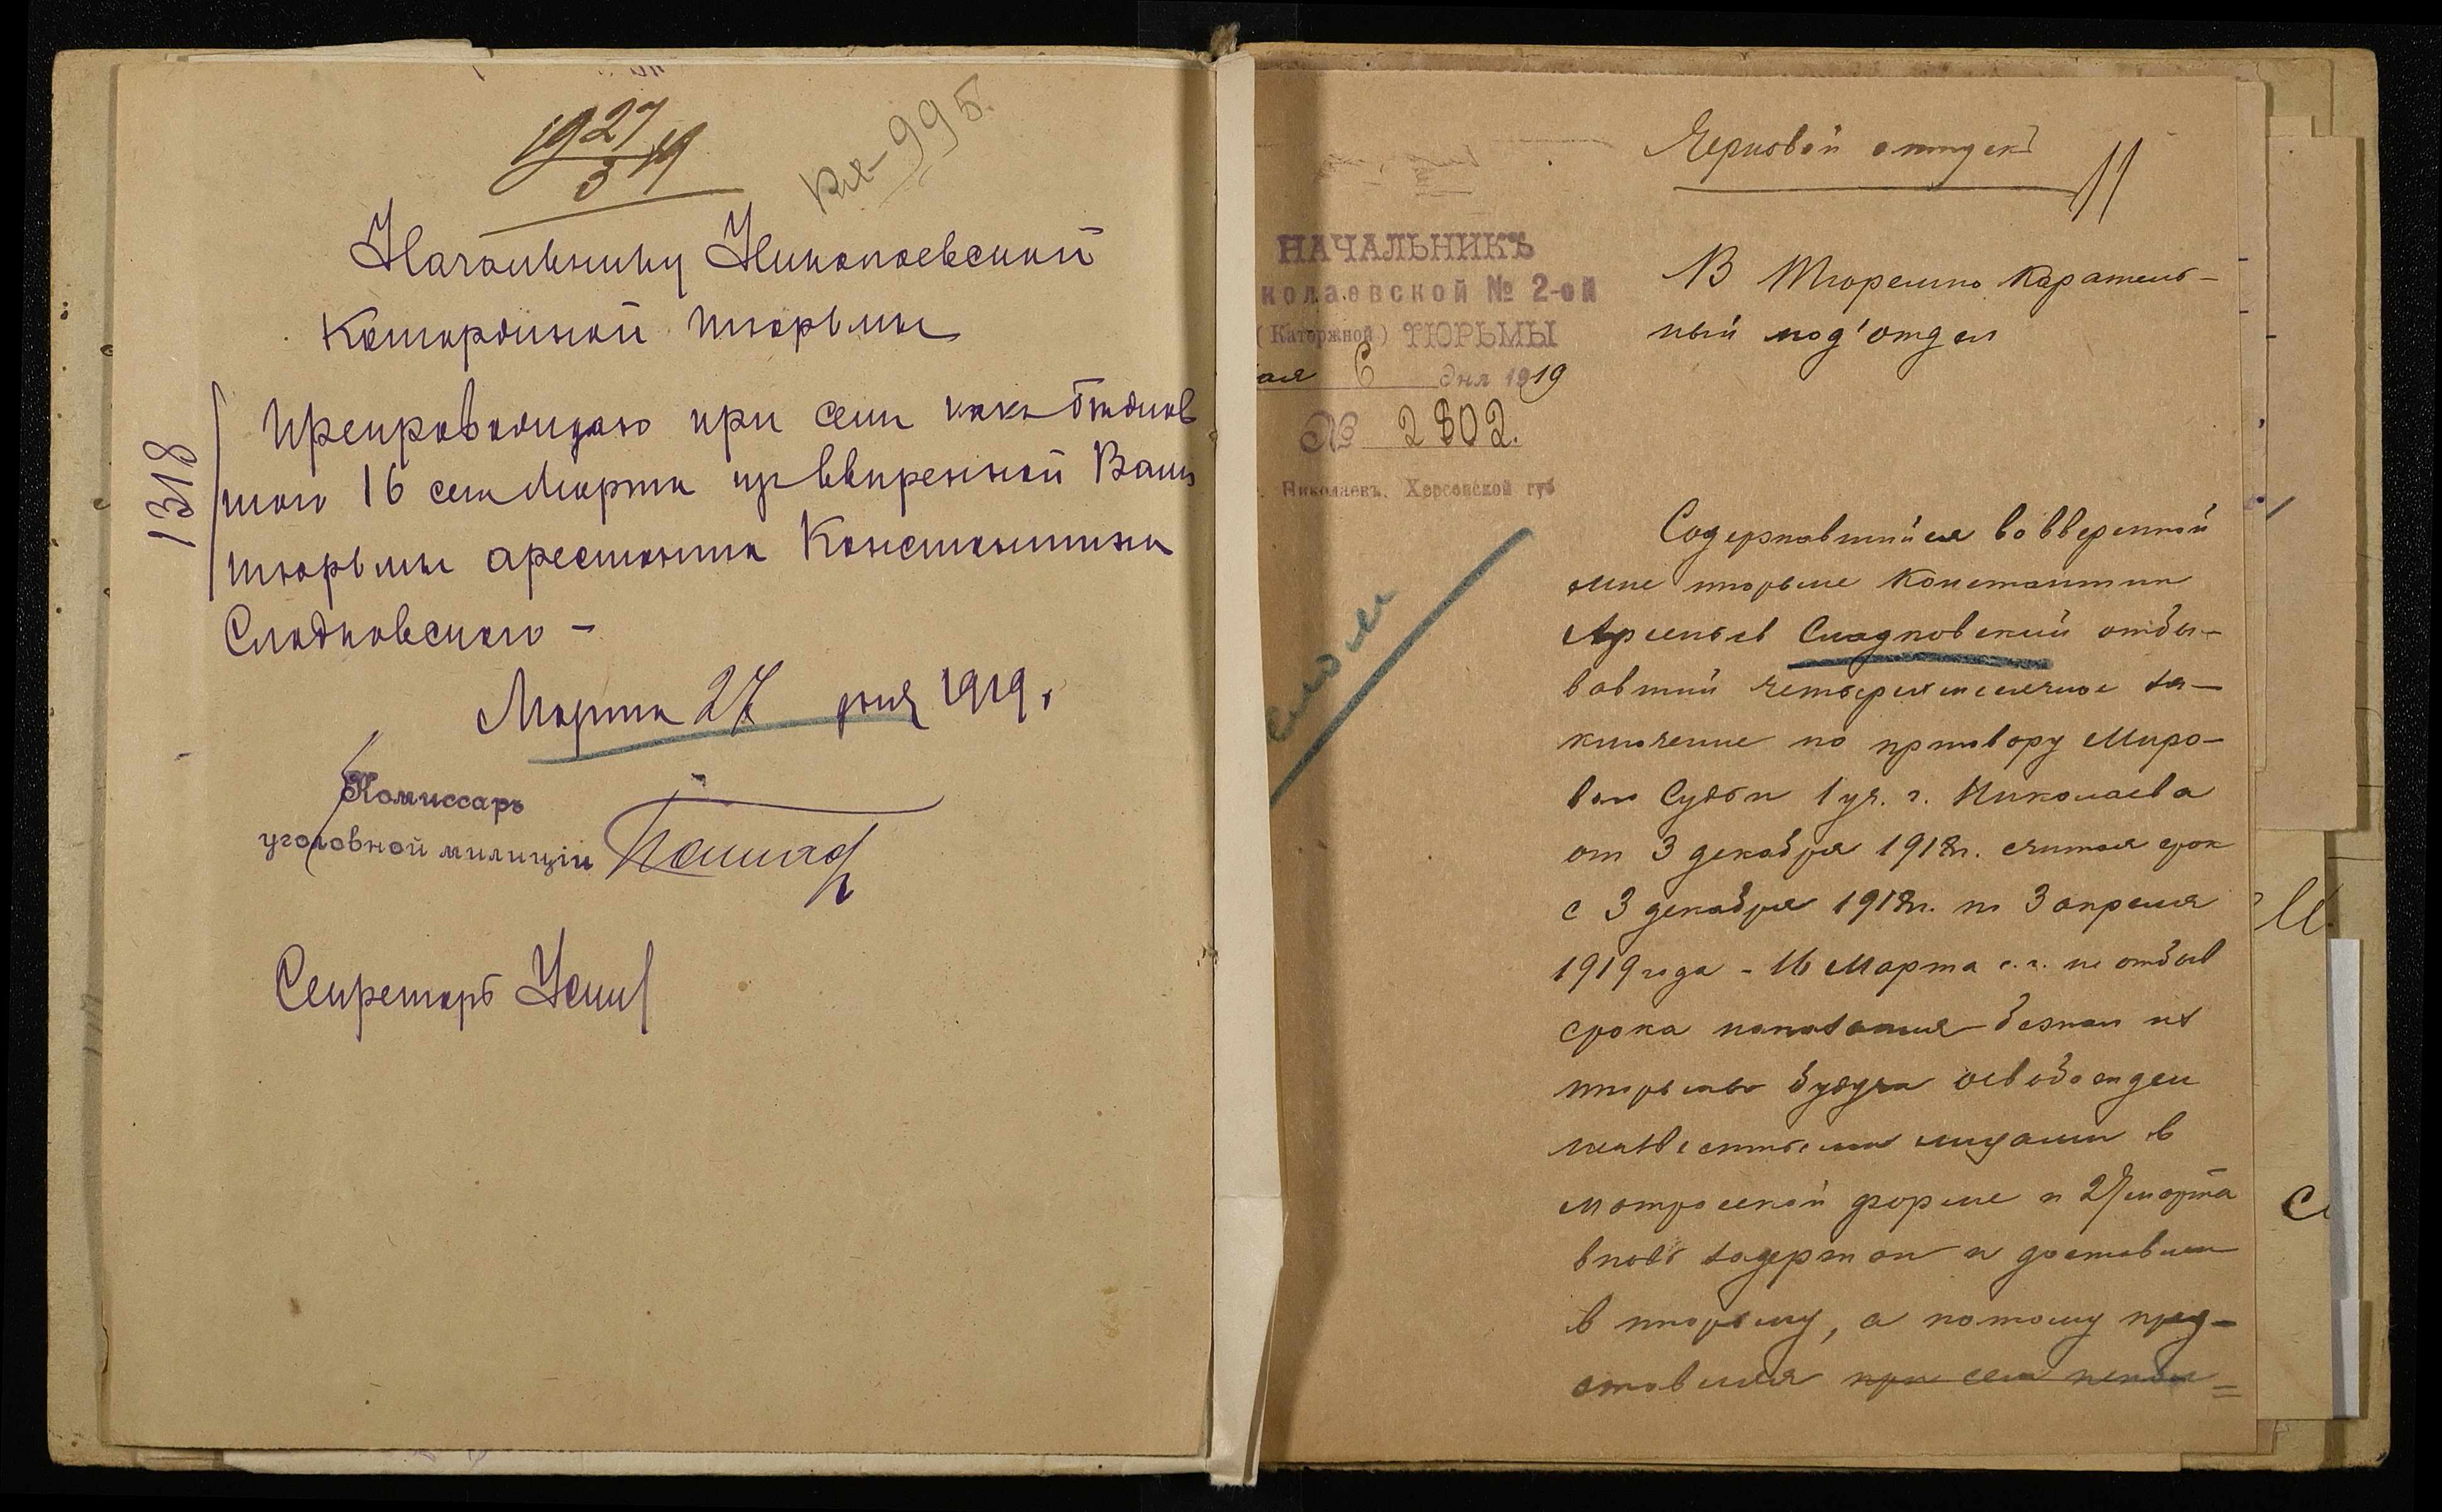 19 27/3 19
Вх-995.
Начальнику Николаевской
Каторжной тюрьмы
1318
Препровождаю при сем как бежав
шого 16 сего Марта из вверенной Вам
тюрьмы арестанта Константина
Сладковского –
Марта 27 дня 1919.
Комиссаръ
уголовной милиціи
Секретарь
Черновой отпускъ
11
НАЧАЛЬНИКЪ
колаевской № 2-ой
(Каторжной) ТЮРЬМЫ
ая 6 дня 1919
№ 2302.
г. Николаевъ, Херсонской губ
В Тюремно Каратель-
ный под'отдел
Содержавшийся во вверенной
мне тюрьме Константин
Арсеньев Сладковский отбы-
вавший четырехмесячное за-
ключение по приговору Миро-
ваго Судьи 1 уч. г. Николаева
от 3 декабря 1918г. считая срок
с 3 декабря 1918г. по 3 апреля
1919 года - 16 Марта с.г. не отбыв
срока наказания бежал из
тюрьмы будучи освобожден
неизвестными лицами в
матросской форме и 27 марта
вновь задержан и доставлен
в тюрьму, а потому пред-
ставляя при сем